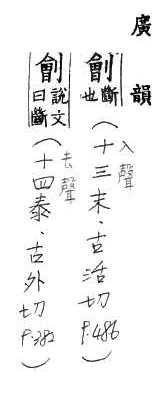 廣韻
劊 斷也 (十三末·古活切 P.486)
入聲
劊 說文曰斷 (十四泰·古外切 P.382)
去聲